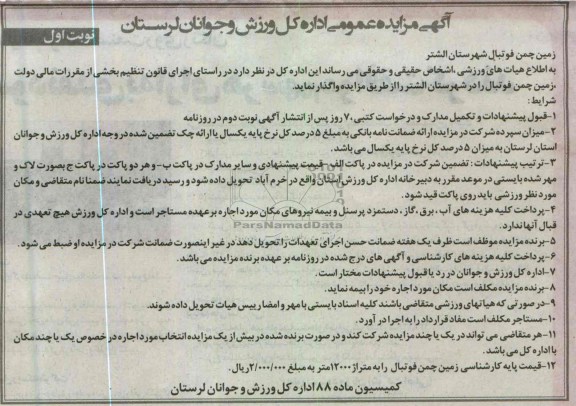 آگهی مزایده عمومی اداره کل ورزش و جوانان لرستان
نوبت اول
زمین چمن فوتبال شهرستان الشتر
به اطلاع هیات های ورزشی ،اشخاص حقیقی و حقوقی می رساند این اداره کل در نظر دارد در راستای اجرای قانون تنظیم بخشی از مقررات مالی دولت
،زمین چمن فوتبال را در شهرستان الشتر را از طریق مزایده واگذار نماید.
شرایط :
۱-قبول پیشنهادات و تکمیل مدارک و درخواست کتبی ،۷ روز پس از انتشار آگهی نوبت دوم در روزنامه
۲-میزان سپرده شرکت در مزایده ارائه ضمانت نامه بانکی به مبلغ ۵ درصد کل نرخ پایه یکسال یا ارائه چک تضمین شده در وجه اداره کل ورزش و جوانان
استان لرستان به میزان ۵ درصد کل نرخ پایه یکسال می باشد.
۳-ترتیب پیشنهادات : تضمین شرکت در مزایده در پاکت الف- قیمت پیشنهادی و سایر مدارک در پاکت ب- و هر دو پاکت در پاکت ج بصورت لاک و
مهر شده بایستی در موعد مقرر به دبیرخانه اداره کل ورزش استان واقع در خرم آباد تحویل داده شود و رسید دریافت نمایند ضمنا نام متقاضی و مکان
مورد نظر ورزشی باید روی پاکت قید شود.
۴-پرداخت کلیه هزینه های آب ،برق ،گاز ، دستمزد پرسنل و بیمه نیروهای مکان مورد اجاره بر عهده مستاجر است و اداره کل ورزش هیچ تعهدی در
قبال آنها ندارد.
۵-برنده مزایده موظف است ظرف یک هفته ضمانت حسن اجرای تعهدات را تحویل دهد در غیر اینصورت ضمانت شرکت در مزایده او ضبط می شود.
۶-پرداخت کلیه هزینه های کارشناسی و آگهی های درج شده در روزنامه بر عهده برنده مزایده می باشد.
۷-اداره کل ورزش و جوانان در رد یا قبول پیشنهادات مختار است.
۸-برنده مزایده مکلف است مکان مورد اجاره خود را بیمه نماید.
۹-در صورتی که هیاتهای ورزشی متقاضی باشند کلیه اسناد بایستی با مهر و امضا رییس هیات تحویل داده شوند.
۱۰-مستاجر مکلف است مفاد قرارداد را به اجرا در آورد.
۱۱-هر متقاضی می تواند در یک یا چند مزایده شرکت کند و در صورت برنده شده در بیش از یک مزایده انتخاب مورد اجاره در خصوص یک یا چند مکان
با اداره کل می باشد.
۱۲-قیمت پایه کارشناسی زمین چمن فوتبال را به متراژ ۱۲۰۰۰متر به مبلغ ۲/۰۰۰/۰۰۰ریال.
کمیسیون ماده ۸۸ اداره کل ورزش و جوانان لرستان
ParsNamadData